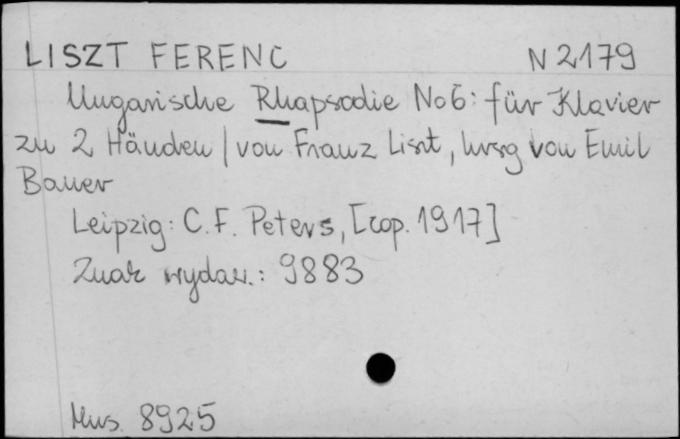 LISZT FERENC N 2179
Ungarische Rhapsodie No6: für Klavier
zu 2 Händen / von Franz Liszt, hrsg von Emil
Bauer
Leipzig: C. F. Peters, [cop. 1917]
Znak wydaw.: 9883
Mus. 8925